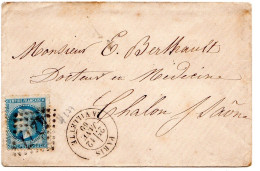 Monsieur E. Berthault
Docteur en Médecine
Chalon s/Saône
PARIS